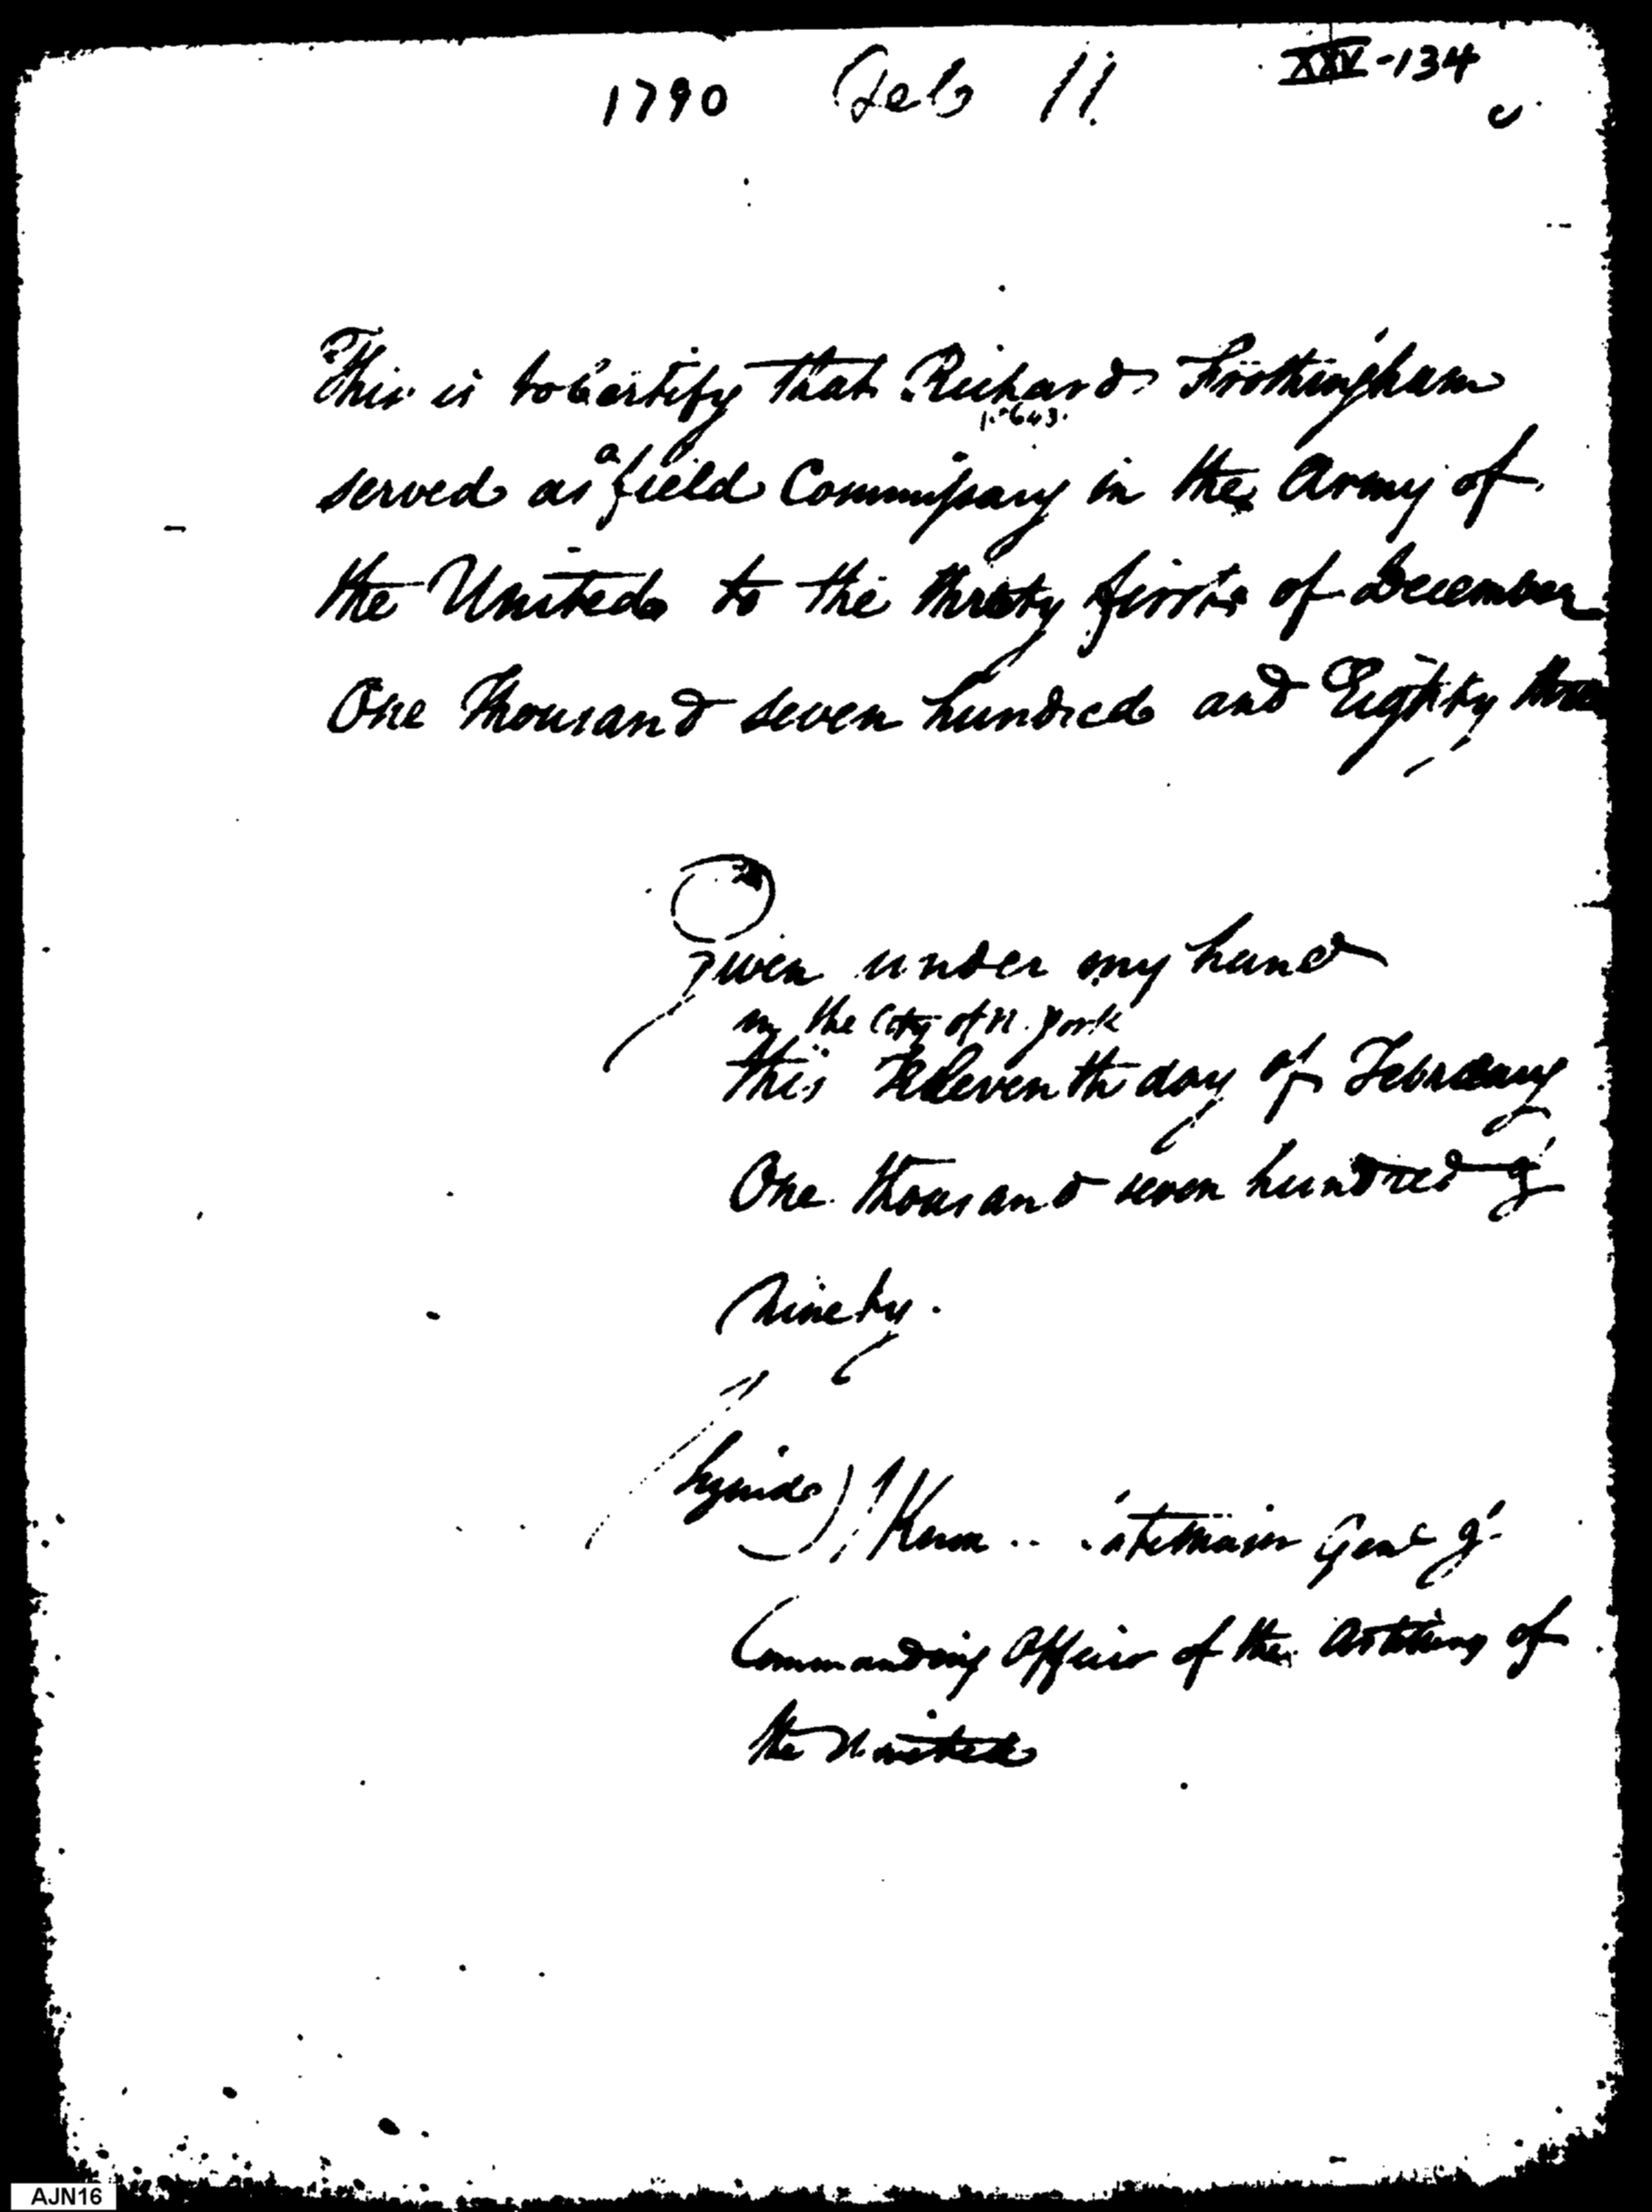 1790 Feb 11.
XXV-134
This is to Certify that Richard Frothingham
served as a field Commissary in the Army of
the United to the thirty first of December
One Thousand seven hundred and Eighty three
Given under my hand
in the City of N. York
this Eleventh day of February
One thousand seven hundred &
ninety.
signed) HKnox .. late Major Genl &
Commanding Officer of the Artillery of
the United
AJN16